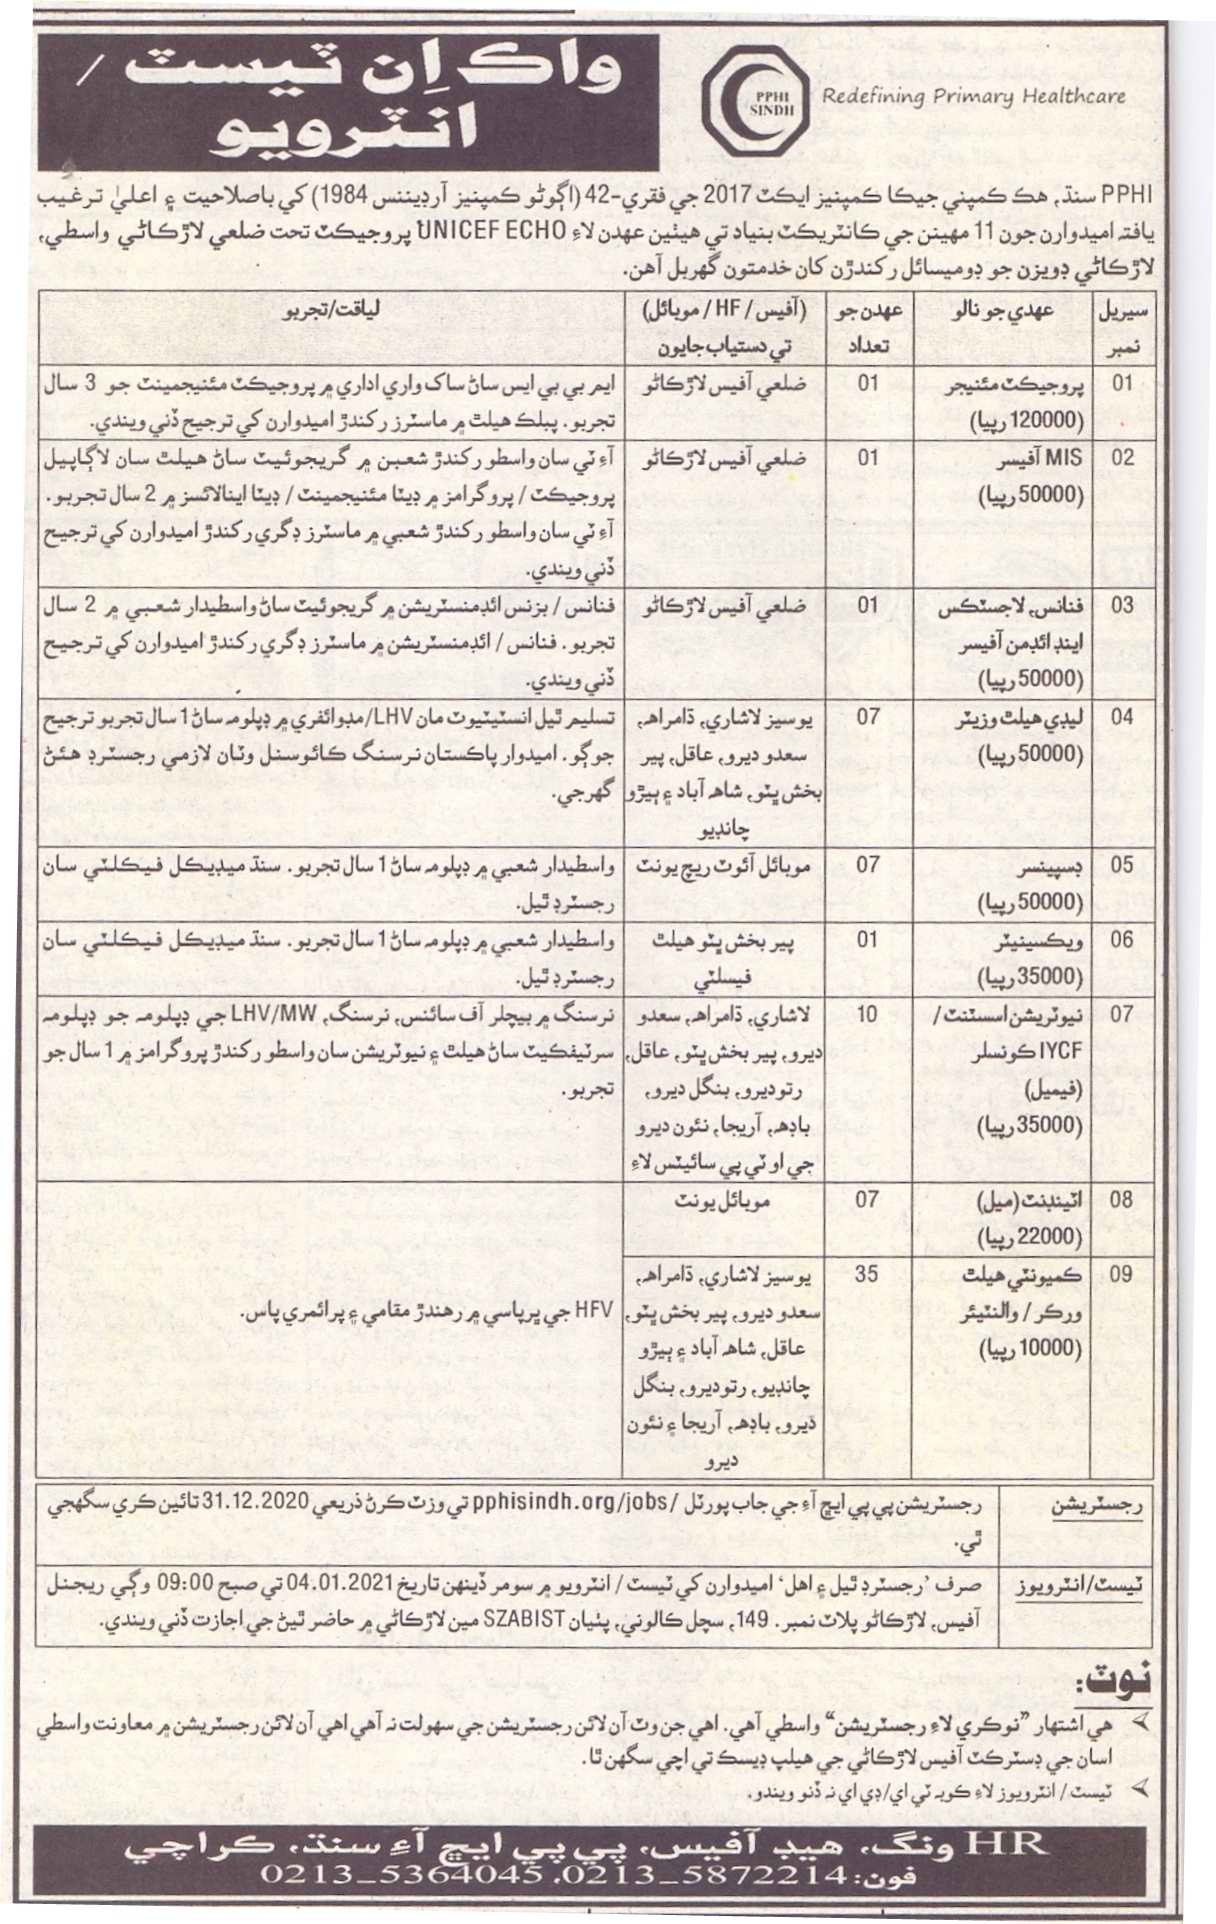 واڪ اِن ٽيسٽ /
انٽرويو
PPHI
SINDH
Redefining Primary Healthcare
PPHI سنڌ، هڪ ڪمپني جيڪا ڪمپنيز ايڪٽ 2017 جي فقري-42 (اڳوڻو ڪمپنيز آرڊيننس 1984) کي باصلاحيت ۽ اعليٰ ترغيب
يافته اميدوارن جون 11 مهينن جي ڪانٽريڪٽ بنياد تي هيٺين عهدن لاءِ UNICEF ECHO پروجيڪٽ تحت ضلعي لاڙڪاڻي واسطي،
لاڙڪاڻي ڊويزن جو ڊوميسائل رکندڙن کان خدمتون گهربل آهن.
سيريل نمبر
عهدي جو نالو
عهدن جو تعداد
(آفيس / HF / موبائل) تي دستياب جايون
لياقت/تجربو
01
پروجيڪٽ مئنيجر
(120000 رپيا)
01
ضلعي آفيس لاڙڪاڻو
ايم بي بي ايس ساڻ ساک واري اداري ۾ پروجيڪٽ مئنيجمينٽ جو 3 سال
تجربو. پبلڪ هيلٿ ۾ ماسٽرز رکندڙ اميدوارن کي ترجيح ڏني ويندي.
02
MIS آفيسر
(50000 رپيا)
01
ضلعي آفيس لاڙڪاڻو
آءِ ٽي سان واسطو رکندڙ شعبن ۾ گريجوئيٽ ساڻ هيلٿ سان لاڳاپيل
پروجيڪٽ / پروگرامز ۾ ڊيٽا مئنيجمينٽ / ڊيٽا اينالائسز ۾ 2 سال تجربو.
آءِ ٽي سان واسطو رکندڙ شعبي ۾ ماسٽرز ڊگري رکندڙ اميدوارن کي ترجيح
ڏني ويندي.
03
فنانس، لاجسٽڪس
اينڊ ائڊمن آفيسر
(50000 رپيا)
01
ضلعي آفيس لاڙڪاڻو
فنانس / بزنس ائڊمنسٽريشن ۾ گريجوئيٽ ساڻ واسطيدار شعبي ۾ 2 سال
تجربو. فنانس / ائڊمنسٽريشن ۾ ماسٽرز ڊگري رکندڙ اميدوارن کي ترجيح
ڏني ويندي.
04
ليڊي هيلٿ وزيٽر
(50000 رپيا)
07
يوسيز لاشاري، ڌامراهه،
سعدو ديرو، عاقل، پير
بخش ڀٽو، شاهه آباد ۽ ٻيڙو
چانڊيو
تسليم ٿيل انسٽيٽيوٽ مان LHV/مڊوائفري ۾ ڊپلومه ساڻ 1 سال تجربو ترجيح
جوڳو. اميدوار پاڪستان نرسنگ ڪائونسل وٽان لازمي رجسٽرڊ هئڻ
گهرجي.
05
ڊسپينسر
(50000 رپيا)
07
موبائل آئوٽ ريچ يونٽ
واسطيدار شعبي ۾ ڊپلومه ساڻ 1 سال تجربو. سنڌ ميڊيڪل فيڪلٽي سان
رجسٽرڊ ٿيل.
06
ويڪسينيٽر
(35000 رپيا)
01
پير بخش ڀٽو هيلٿ
فيسلٽي
واسطيدار شعبي ۾ ڊپلومه ساڻ 1 سال تجربو. سنڌ ميڊيڪل فيڪلٽي سان
رجسٽرڊ ٿيل.
07
نيوٽريشن اسسٽنٽ /
IYCF ڪونسلر
(فيميل)
(35000 رپيا)
10
لاشاري، ڌامراهه، سعدو
ديرو، پير بخش ڀٽو، عاقل،
رتوديرو، بنگل ديرو،
باڊهه، آريجا، نئون ديرو
جي او ٽي پي سائيٽس لاءِ
نرسنگ ۾ بيچلر آف سائنس، نرسنگ، LHV/MW جي ڊپلومه جو ڊپلومه
سرٽيفڪيٽ ساڻ هيلٿ ۽ نيوٽريشن سان واسطو رکندڙ پروگرامز ۾ 1 سال جو
تجربو.
08
اٽينڊنٽ (ميل)
(22000 رپيا)
07
موبائل يونٽ
09
ڪميونٽي هيلٿ
ورڪر / والنٽيئر
(10000 رپيا)
35
يوسيز لاشاري، ڌامراهه،
سعدو ديرو، پير بخش ڀٽو،
عاقل، شاهه آباد ۽ ٻيڙو
چانڊيو، رتوديرو، بنگل
ڌيرو، باڊهه، آريجا ۽ نئون
ديرو
HFV جي ڀرپاسي ۾ رهندڙ مقامي ۽ پرائمري پاس.
رجسٽريشن
رجسٽريشن پي پي ايڇ آءِ جي جاب پورٽل pphisindh.org/jobs/ تي وزٽ ڪرڻ ذريعي 31.12.2020 تائين ڪري سگهجي
ٿي.
ٽيسٽ/انٽرويوز
صرف ’رجسٽرڊ ٿيل ۽ اهل‘ اميدوارن کي ٽيسٽ / انٽرويو ۾ سومر ڏينهن تاريخ 04.01.2021 تي صبح 09:00 وڳي ريجنل
آفيس، لاڙڪاڻو پلاٽ نمبر. 149، سچل ڪالوني، پٺيان SZABIST مين لاڙڪاڻي ۾ حاضر ٿيڻ جي اجازت ڏني ويندي.
نوٽ:
هي اشتهار ”نوڪري لاءِ رجسٽريشن“ واسطي آهي. اهي جن وٽ آن لائن رجسٽريشن جي سهولت نه آهي اهي آن لائن رجسٽريشن ۾ معاونت واسطي
اسان جي ڊسٽرڪٽ آفيس لاڙڪاڻي جي هيلپ ڊيسڪ تي اچي سگهن ٿا.
ٽيسٽ / انٽرويوز لاءِ ڪوبه ٽي اي/ڊي اي نه ڏنو ويندو.
HR ونگ، هيڊ آفيس، پي پي ايڇ آءِ سنڌ، ڪراچي
فون: 0213_5872214، 0213_5364045